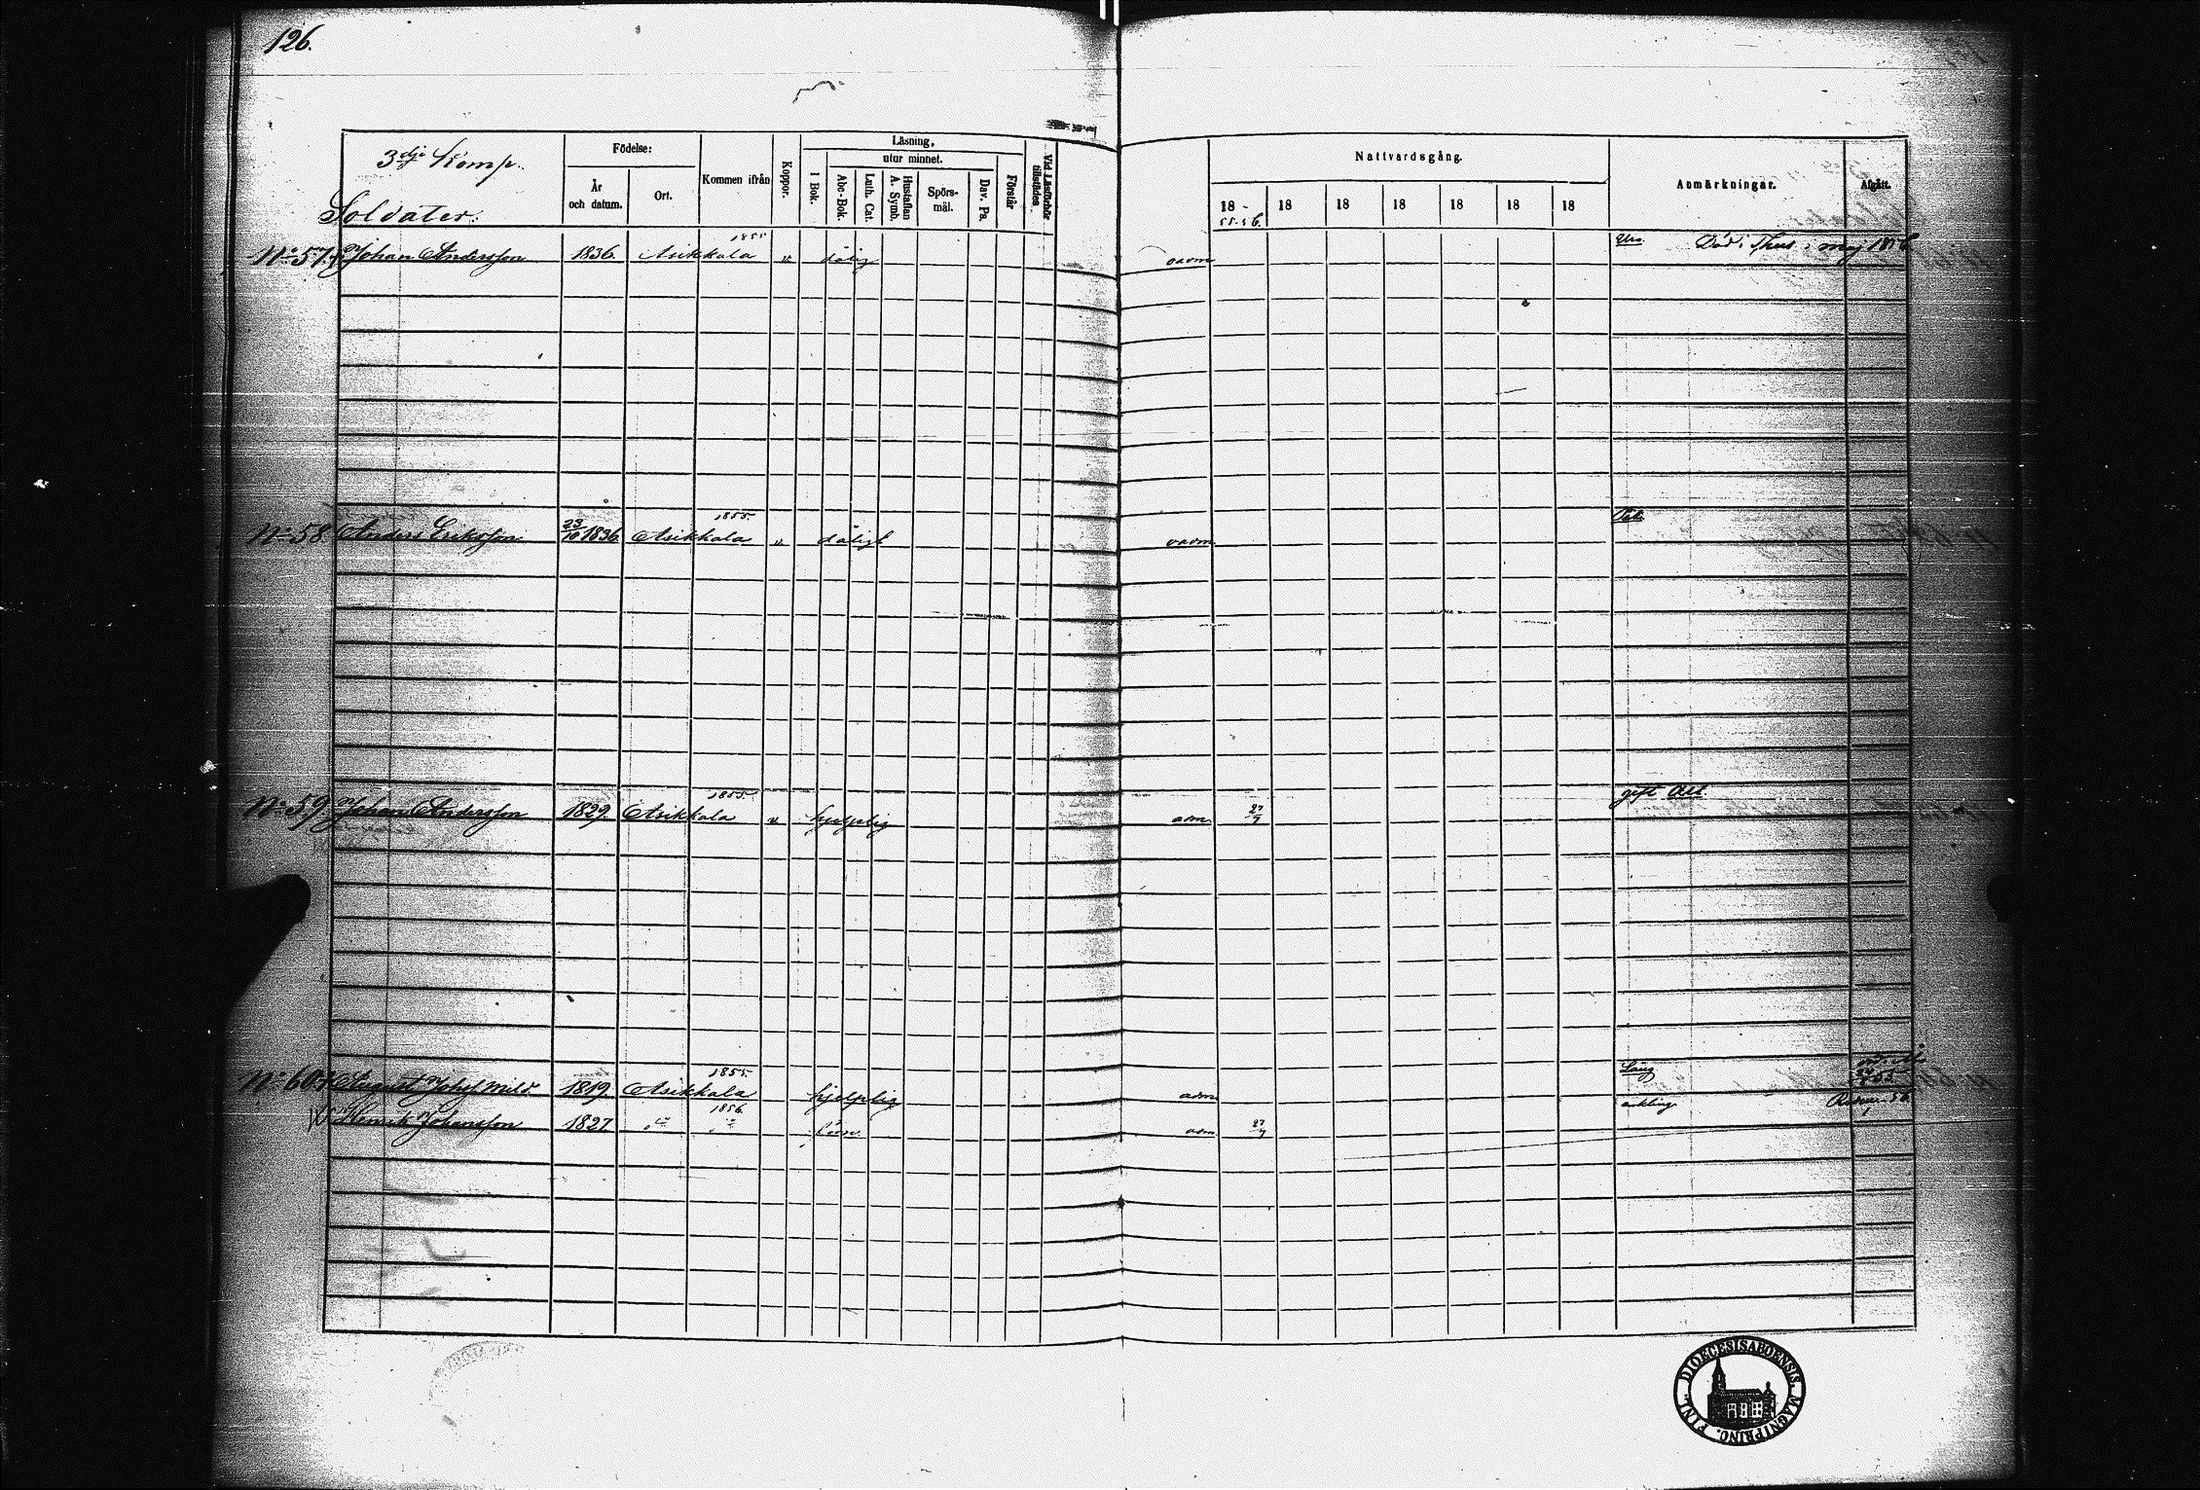 126.
3dje Komp.
Soldater.
Födelse:
År och datum.
Ort.
Kommen ifrån
Koppor.
Läsning,
utur minnet.
I Bok.
Abc-Bok.
Luth. Cat.
Hustaflan A. Symb.
Spörsmål.
Dav. Ps.
Förstår
Vid Läsförhör tillstädes
Nattvardsgång.
18 - 18 18 18 18 18 18
55.56.
Anmärkningar.
Afgått.
No 57. Johan Andersson 1836. Asikkala 1855 " dålig oadm Död i maj 1856
No 58. Anders Eriksson 23/10 1836 Asikkala 1855. " dåligt oadm
No 59. Johan Andersson 1829. Asikkala 1855. " hjelplig adm 27/7 gift
No 60. August Mild. 1819. Asikkala 1855. hjelplig adm
Henrik Johansson 1827. " 1856. " adm 27/7
DIOECESIS ABOENSIS. MAGNI PRINC. FINL.